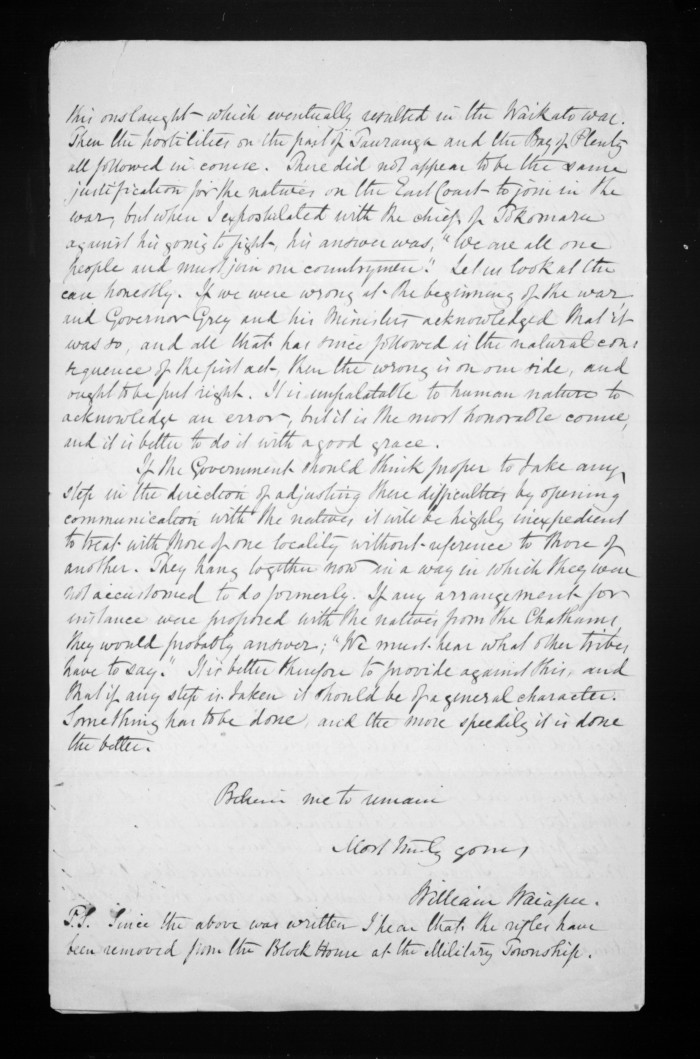 this onslaught which eventually resulted in the Waikato war.
Then the hostilities on the part of Tauranga and the Bay of Plenty
all followed in course. There did not appear to be the same
justification for the natives on the East Coast to join in the
war, but when I expostulated with the chief of Tokomaru
against his going to fight, his answer was, "We are all one
people and must join our countrymen." Let us look at the
case honestly. If we were wrong at the beginning of the war,
and Governor Grey and his Ministers acknowledged that it
was so, and all that has since followed is the natural con:
sequence of the first act, then the wrong is on our side, and
ought to be put right. It is unpalatable to human nature to
acknowledge an error, but it is the most honorable course,
and it is better to do it with a good grace.
If the Government should think proper to take any
step in the direction of adjusting these difficulties by opening
communication with the natives it will be highly inexpedient
to treat with those of one locality without reference to those of
another. They hang together now in a way in which they were
not accustomed to do formerly. If any arrangement for
instance were proposed with the natives from the Chathams,
they would probably answer; "We must hear what other tribes
have to say." It is better therefore to provide against this, and
that if any step is taken it should be of a general character.
Something has to be done, and the more speedily it is done
the better.
Believe me to remain
Most truly yours
William Waiapu.
P.S. Since the above was written I hear that the rifles have
been removed from the Block House at the Military Township.